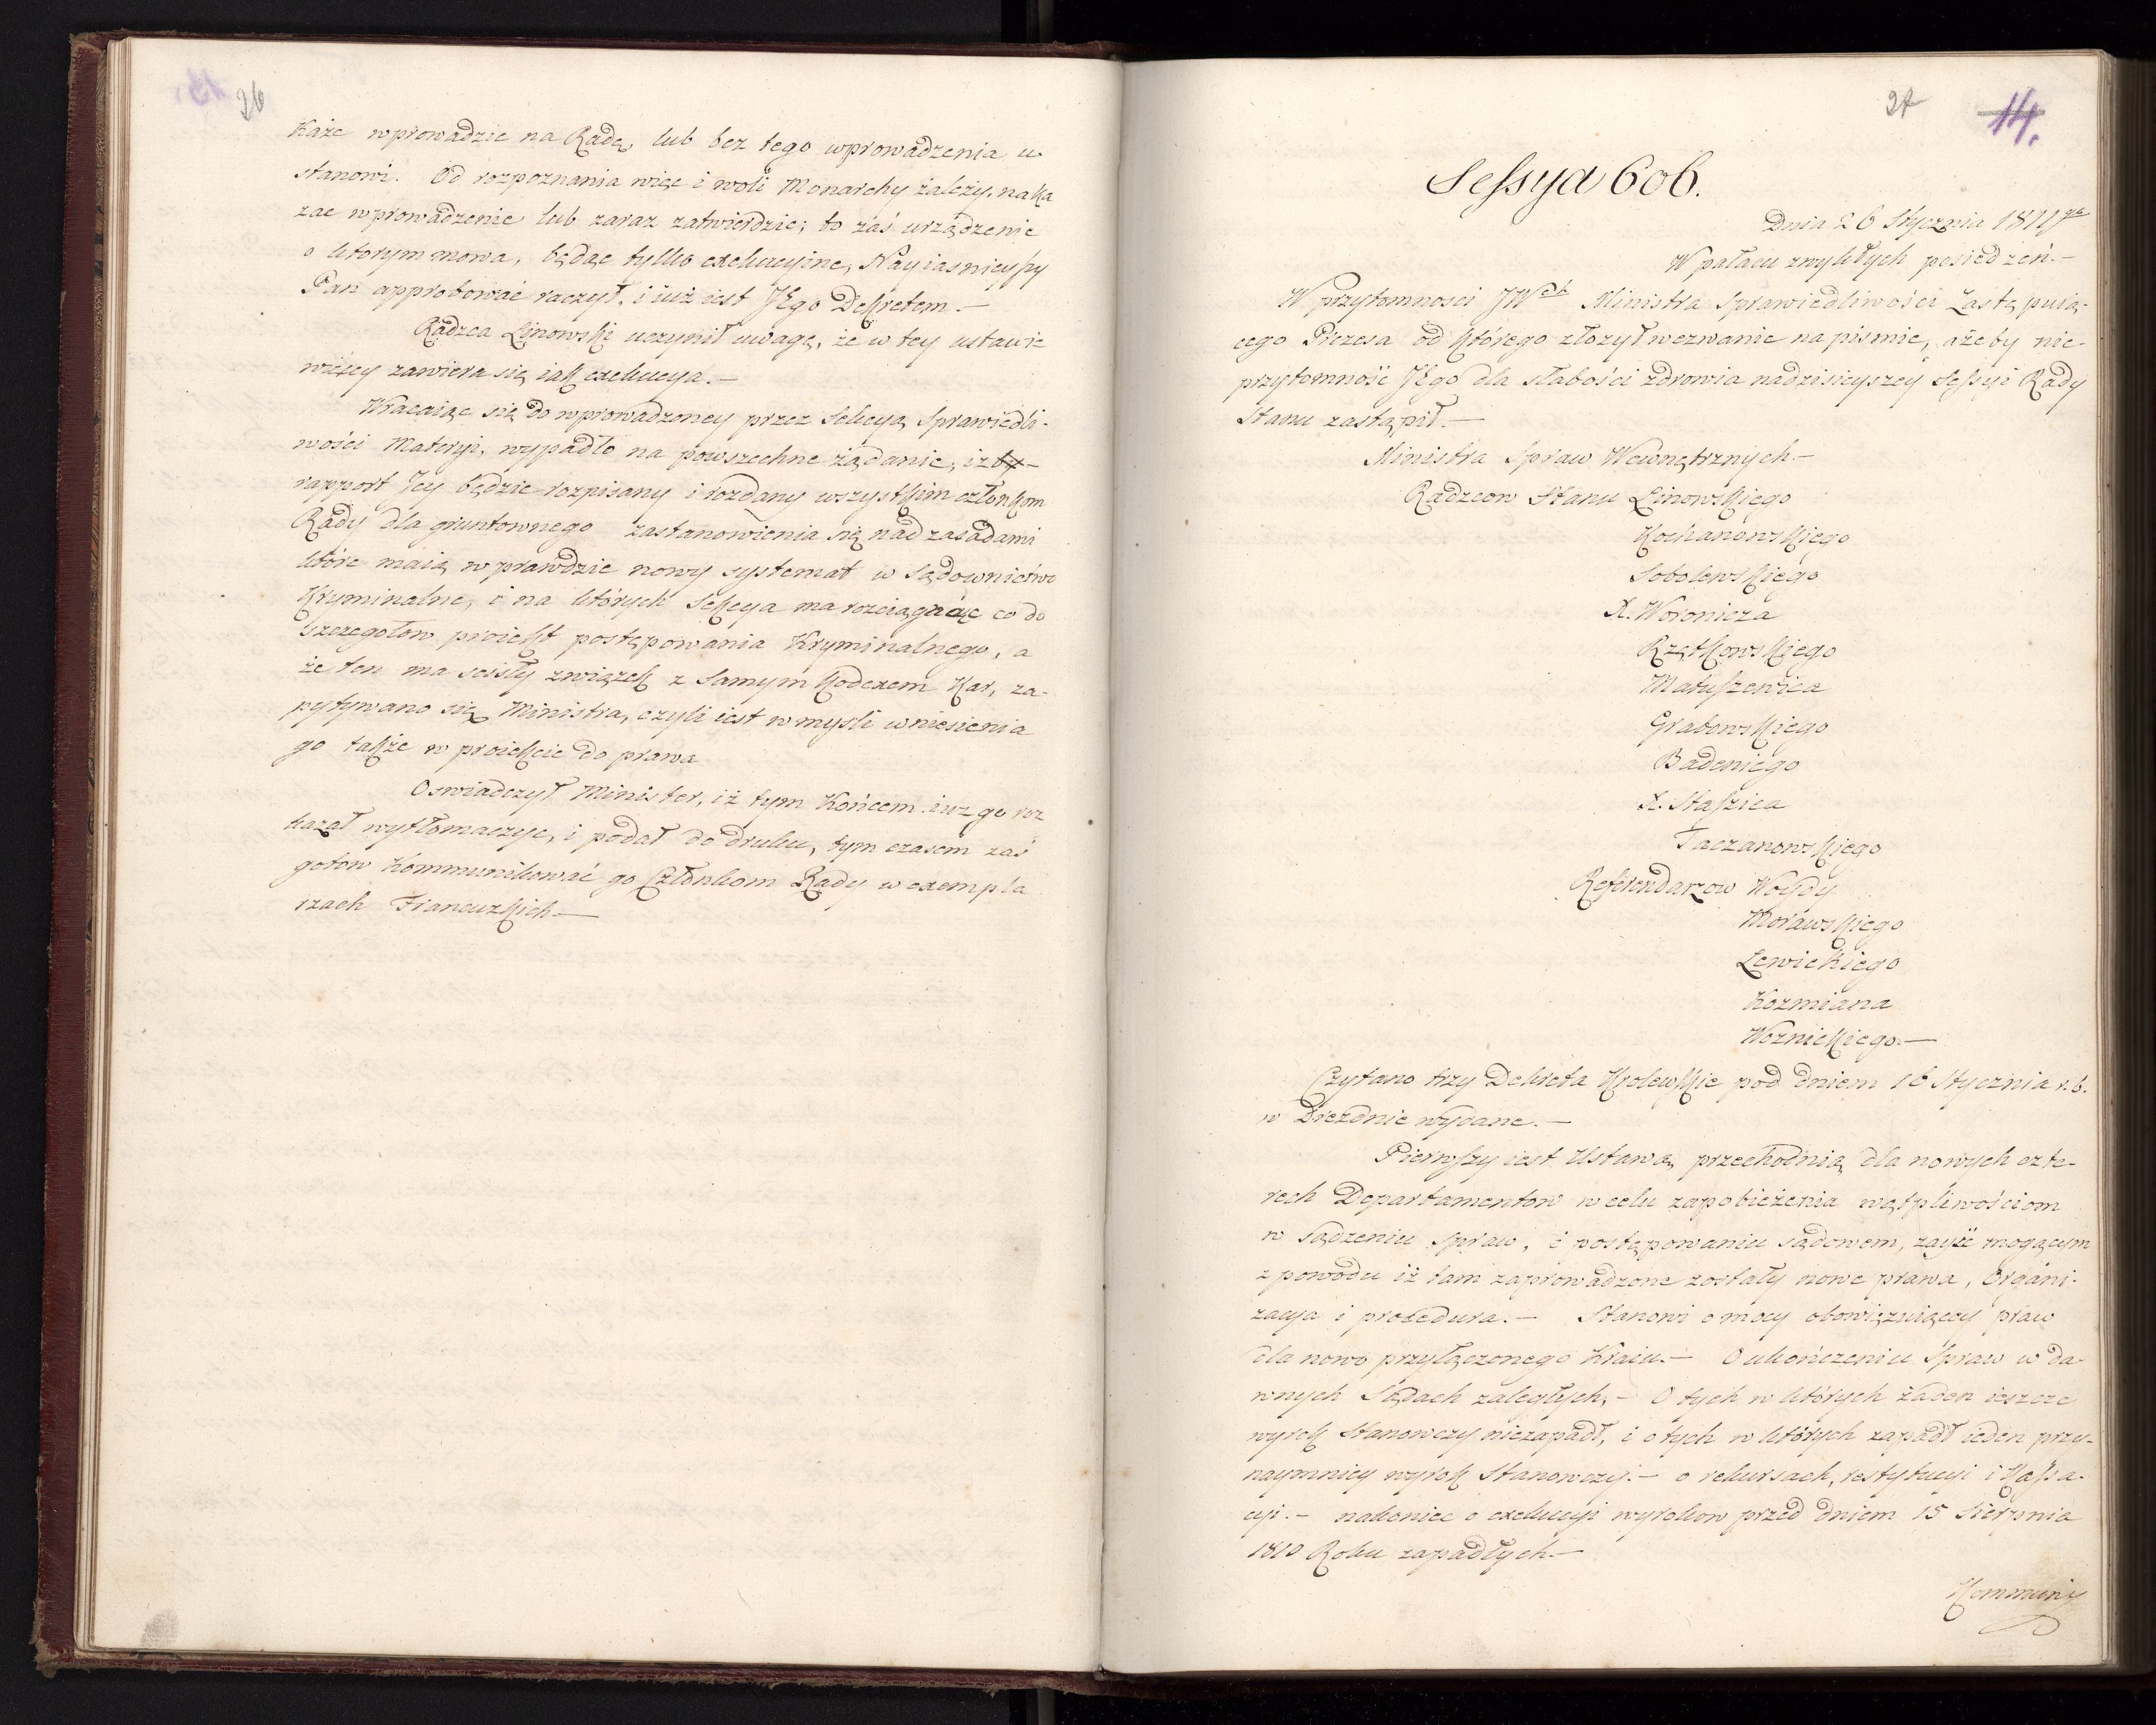 26
Każe wprowadzic na Radę, lub bez tego wprowadzenia u-
stanowi. Od rozpoznania więc i woli Monarchy zależy, naka
zac wprowadzenie lub zaraz zatwierdzic; to zaś urządzenie
o ktorym mowa, będąc tylko exekucyine, Nayiasnieyszy
Pan approbować raczył, i iuż iest JEgo Dekretem.—
Radzca Linowski uczynił uwagę, że w tey ustawie
więcy zawiera się iak exekucya.—
Wracaiąc się do wprowadzoney przez Sekcyą Sprawiedli-
wości Materyi, wypadło na powszechne żądanie, iż by-
rapport Jey będzie rozpisany i rozdany wszystkim członkom
Rady dla gruntownego zastanowienia się nad zasadami
które maią wprawdzie nowy systemat w Sądownictwo
Kryminalne, i na których Sekcya ma rozciągnąc co do
szczegołow proiekt postępowania Kryminalnego, a
że ten ma scisły związek z Samym Kodexem Kar, za-
pytywano się Ministra, czyli iest w mysli wniesienia
go także w proiekcie do prawa
Oswiadczył Minister, iż tym Końcem iuz go roz
kazał wytłomaczyc, i podał do druku, tym czasem zaś
gotow Kommunikować go Członkom Rady w exempla
rzach Francuzkich—
27
14.
Sessya 606.
Dnia 26 Stycznia 1811go
W pałacu zwykłych posiedzeń.—
W przytomnosci JWch Ministra Sprawiedliwości Zastępuią-
cego Prezesa od którego złozył wezwanie na pismie, ażeby nie-
przytomność JEgo dla słabości zdrowia na dzisieyszey Sessyi Rady
Stanu zastąpił.—
Ministra Spraw Wewnętrznych.—
Radzcow Stanu Linowskiego
Kochanowskiego
Sobolewskiego
X. Woronicza
Rzętkowskiego
Matuszewica
Grabowskiego
Badeniego
X. Staszica
Taczanowskiego
Referendarzow Woydy
Morawskiego
Lewickiego
Kozmiana
Woznickiego.—
Czytano trzy Dekreta Krolewskie pod dniem 16 Stycznia r. b.
w Dreżdnie wydane.—
Pierwszy iest Ustawą przechodnią dla nowych czte-
rech Departamentow w celu zapobieżenia wątpliwościom
w sądzeniu spraw, i postępowaniu sądowem, zayść mogącym
z powodu iż tam zaprowadzone zostały nowe prawa, Organi-
zacya i procedura.— Stanowi o mocy obowiązuiącey praw
dla nowo przyłączonego Kraiu.— O ukończeniu Spraw w da-
wnych Sądach zaległych,— O tych w których żaden ieszcze
wyrok Stanowczy niezapadł, i o tych w których zapadł ieden przy-
naymniey wyrok Stanowczy.— o rekursach, restytucyi i Kassa-
cyi.— nakoniec o exekucyi wyrokow przed dniem 15 Sierpnia
1810 Roku zapadłych.—
Kommuni